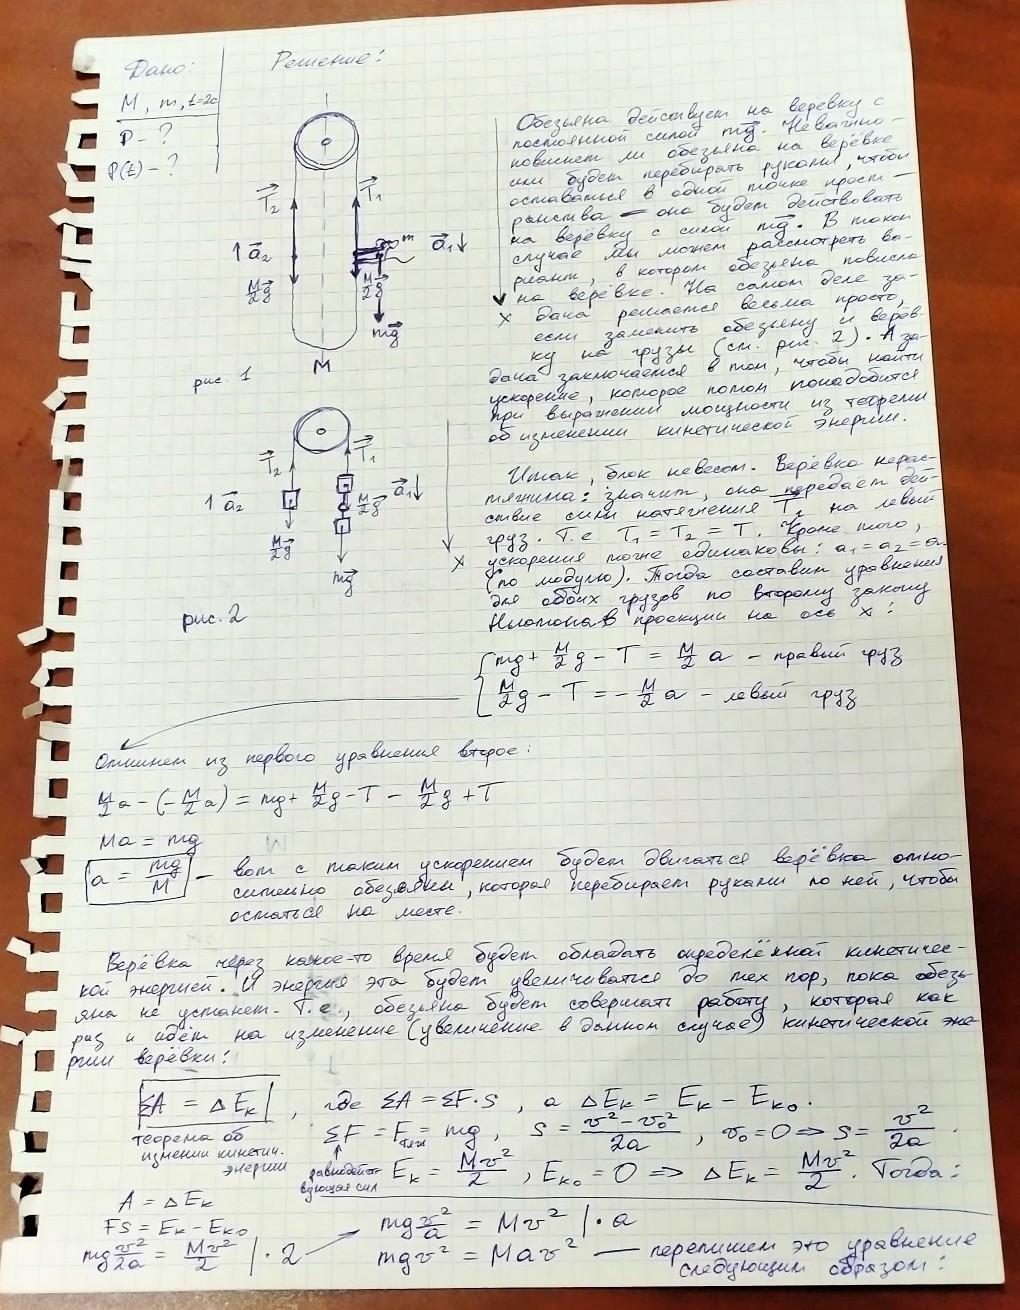 Дано:
M, m, t=2с
P - ?
P(t) - ?
Решение:
T₂
T₁
m
↑ a₂
a₁↓
M/2 g
M/2 g
mg
M
x
рис. 1
Обезьяна действует на верёвку с
постоянной силой mg. Неважно -
повиснет ли обезьяна на верёвке
или будет перебирать руками, чтобы
оставаться в одной точке прост-
ранства - она будет действовать
на верёвку с силой mg. В таком
случае мы можем рассмотреть ва-
риант, в котором обезьяна повисла
на верёвке. На самом деле за-
дача решается весьма просто,
если заменить обезьяну и верёв-
ку на грузы (см. рис. 2). А за-
дача заключается в том, чтобы найти
ускорение, которое потом понадобится
при выражении мощности из теоремы
об изменении кинетической энергии.
T₂
T₁
↑ a₂
M/2 g
a₁↓
M/2 g
mg
x
рис. 2
Итак, блок невесом. Верёвка нерас-
тяжима: значит, она передаёт дей-
ствие силы натяжения T₁ на левый
груз. Т.е T₁ = T₂ = T. Кроме того,
ускорения тоже одинаковы: a₁ = a₂ = a
(по модулю). Тогда составим уравнения
для обоих грузов по второму закону
Ньютона в проекции на ось x:
mg + M/2 g - T = M/2 a - правый груз
M/2 g - T = - M/2 a - левый груз
Отнимем из первого уравнения второе:
M/2 a - (- M/2 a) = mg + M/2 g - T - M/2 g + T
Ma = mg
a = mg/M - вот с таким ускорением будет двигаться верёвка отно-
сительно обезьяны, которая перебирает руками по ней, чтобы
остаться на месте.
Верёвка через какое-то время будет обладать определённой кинетичес-
кой энергией. И энергия эта будет увеличиваться до тех пор, пока обезь-
яна не устанет. Т.е., обезьяна будет совершать работу, которая как
раз и идёт на изменение (увеличение в данном случае) кинетической эне-
ргии верёвки:
ΣA = ΔEк, где ΣA = ΣF·s, а ΔEк = Eк - Eк₀.
теорема об
изменении кинетич.
энергии
ΣF = Fтяж = mg, s = (v² - v₀²)/2a, v₀ = 0 ⇒ s = v²/2a.
равнодейст-
вующая сил
Eк = Mv²/2, Eк₀ = 0 ⇒ ΔEк = Mv²/2. Тогда:
A = ΔEк
FS = Eк - Eк₀
mg v²/2a = Mv²/2 | · 2
mg v²/a = Mv² | · a
mgv² = Mav² — перепишем это уравнение
следующим образом: